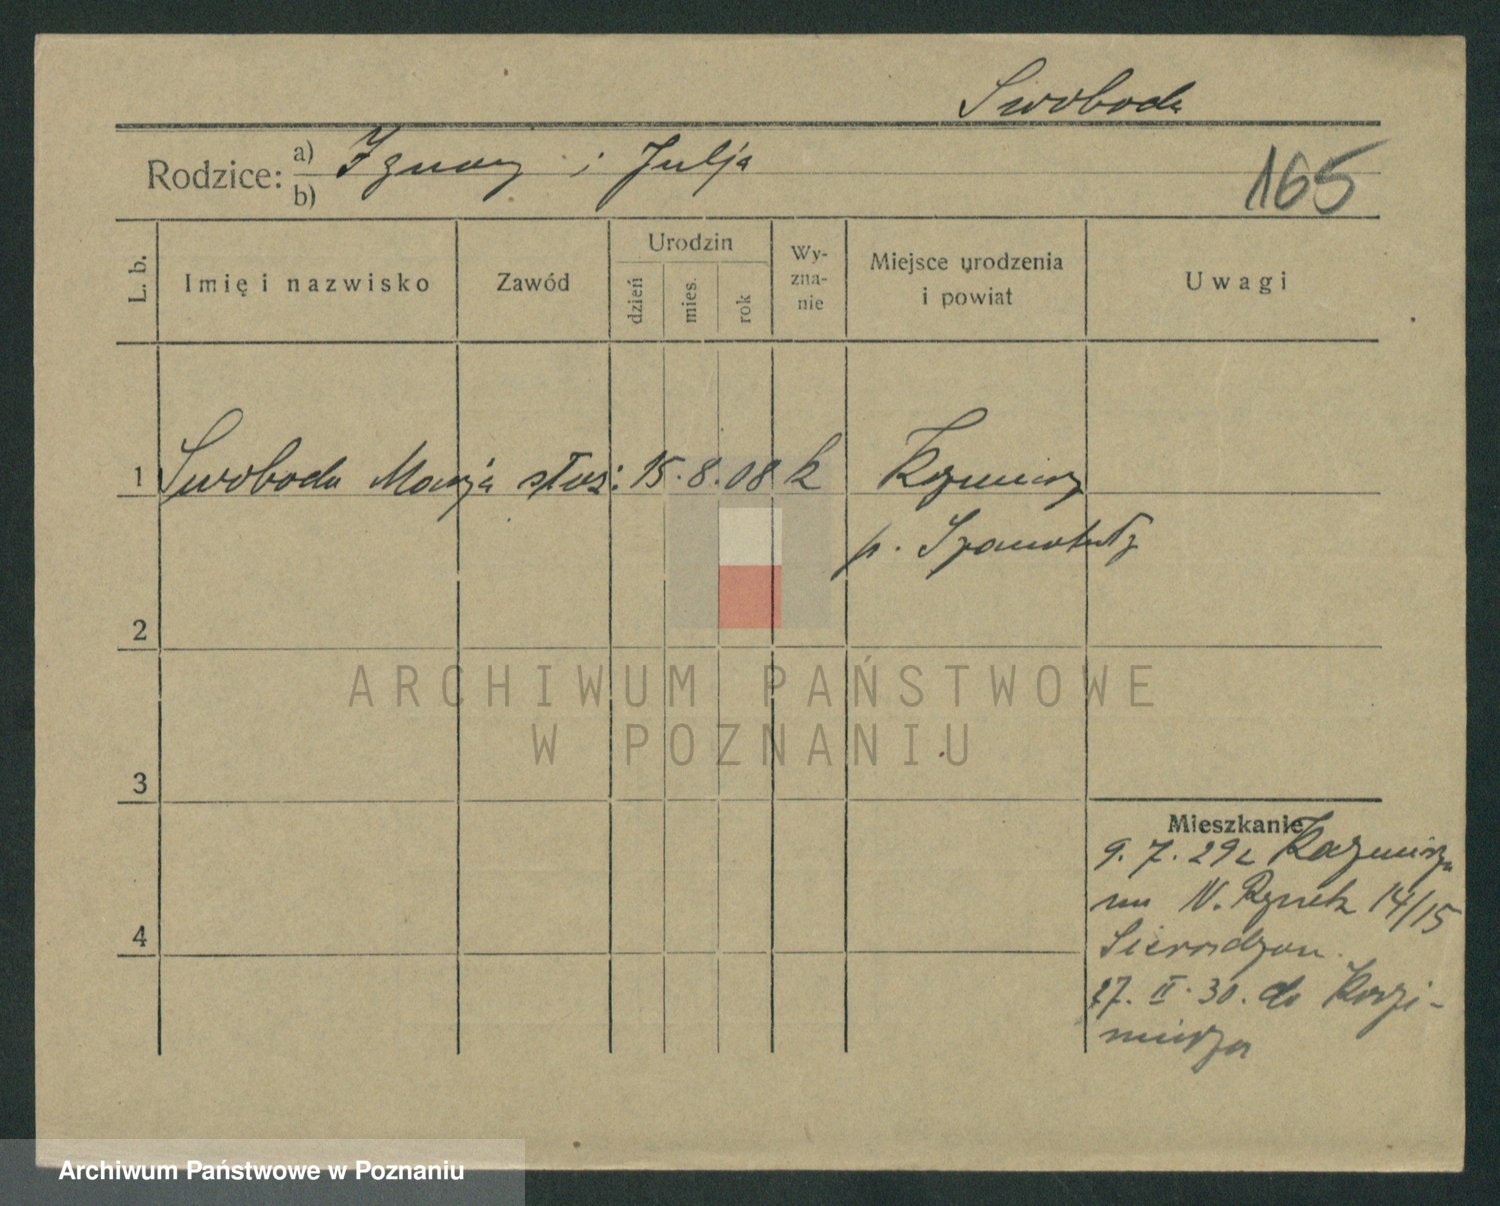 Swoboda
Rodzice: a) Ignacy i Julja
b)
165
L. b.
Imię i nazwisko
Zawód
Urodzin
dzień
mies.
rok
Wy-
zna-
nie
Miejsce urodzenia
i powiat
Uwagi
1 Swoboda Marja służ. 15. 8. 08 k Kaźmierz
p. Szamotuły
2
3
4
Mieszkanie
9. 7. 29 z Kaźmierza
na N. Rynek 14/15
27. II. 30. do Kaźmierza
ARCHIWUM PAŃSTWOWE
W POZNANIU
Archiwum Państwowe w Poznaniu